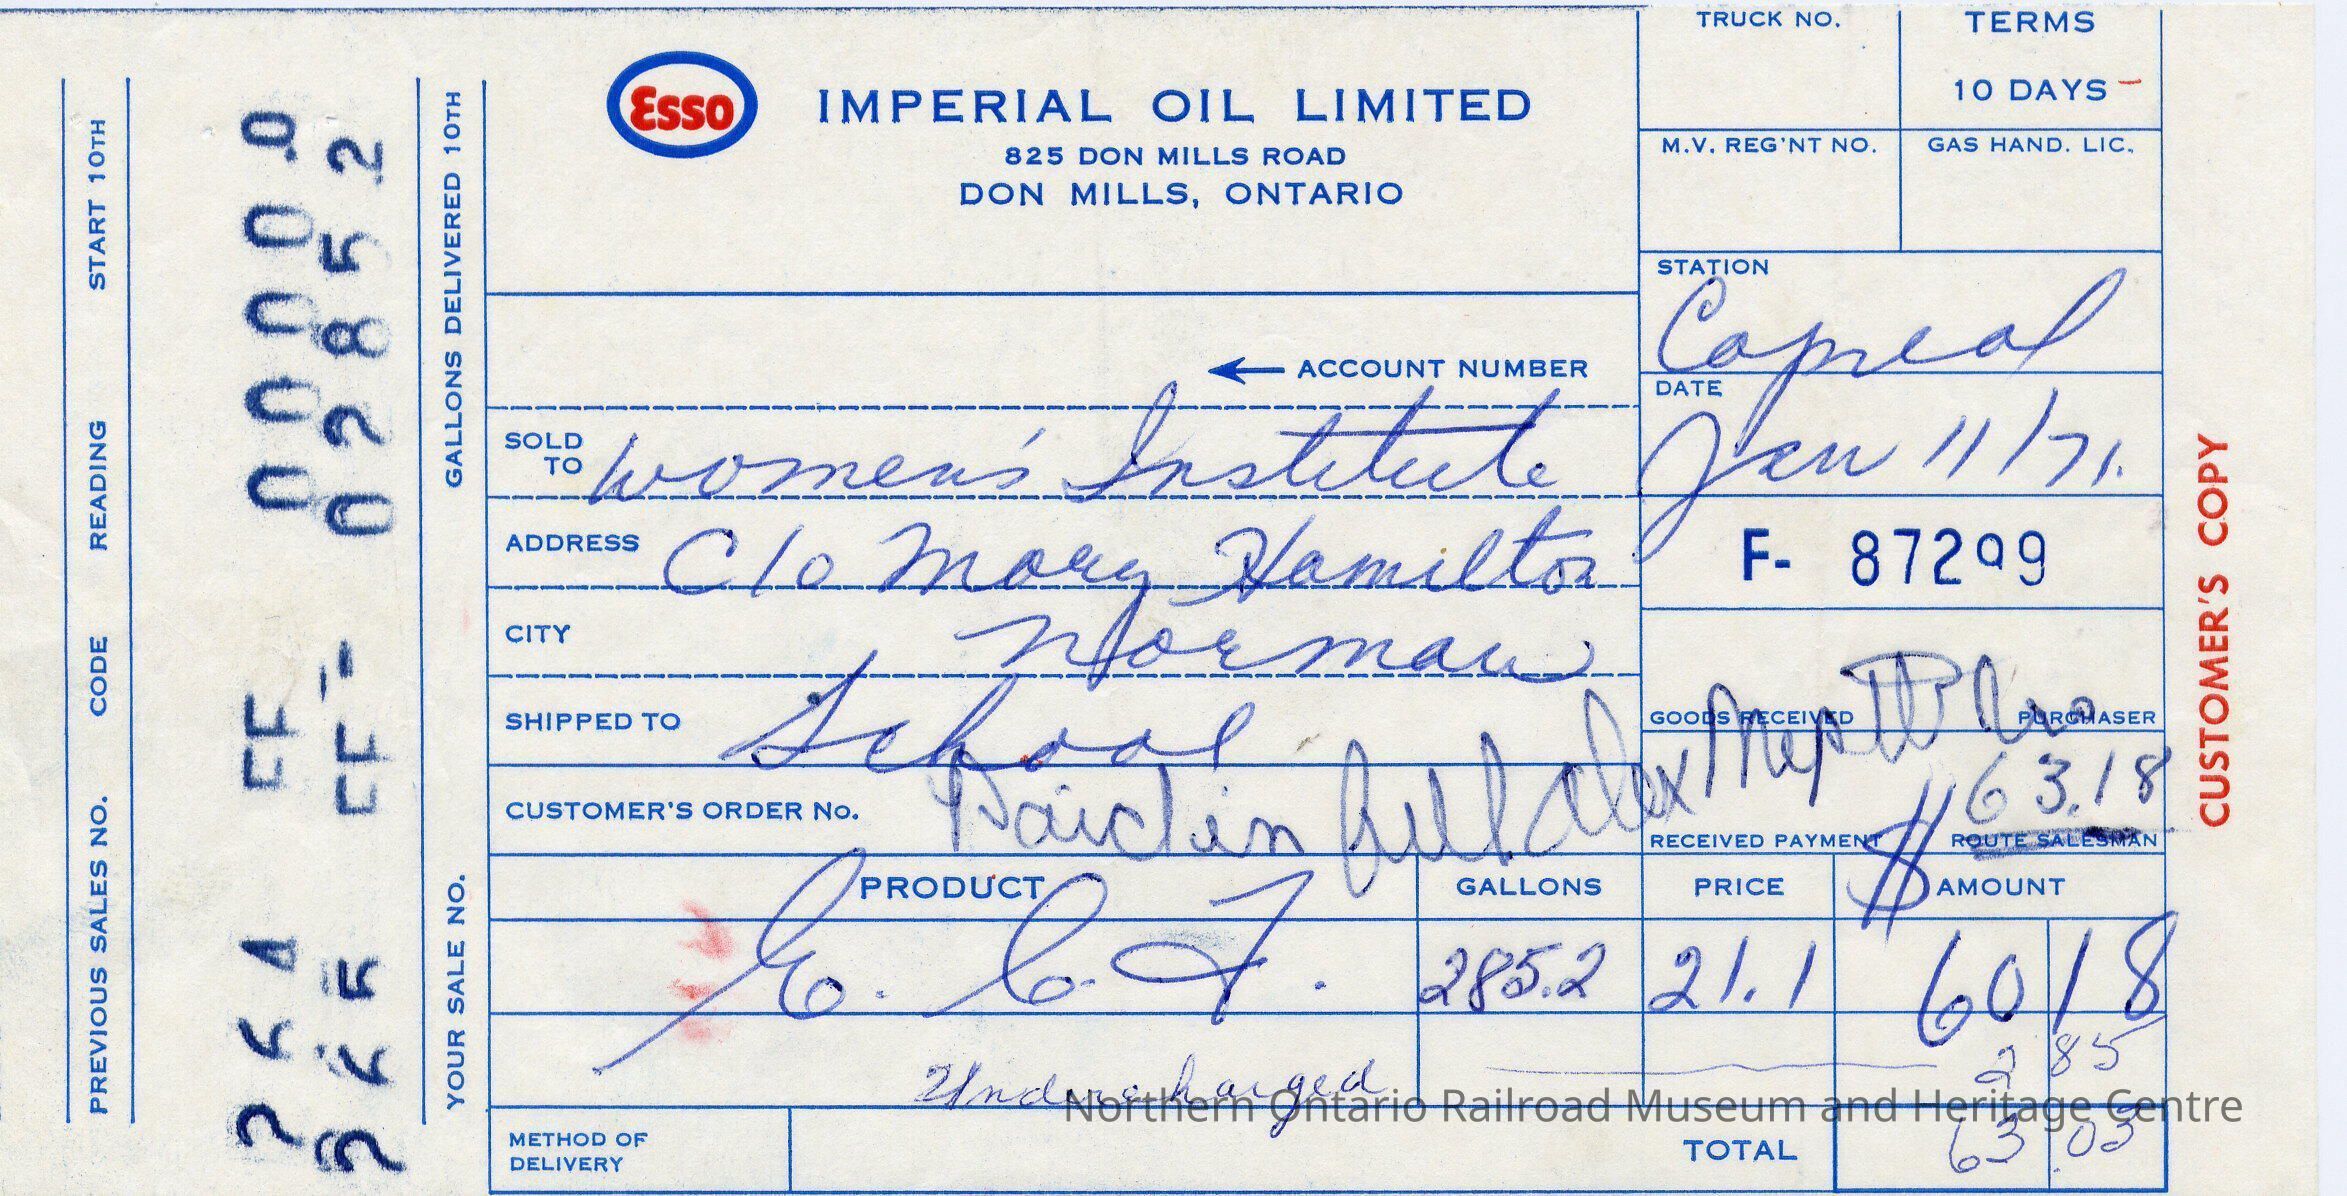 Esso
IMPERIAL OIL LIMITED
825 DON MILLS ROAD
DON MILLS, ONTARIO
TRUCK NO.
TERMS
10 DAYS
M.V. REG'NT NO.
GAS HAND. LIC.
STATION
Capreol
ACCOUNT NUMBER
DATE
Jan 11/71.
SOLD TO Women's Institute
ADDRESS C/o Mary Hamilton
F- 87299
CITY Norman
SHIPPED TO School
GOODS RECEIVED PURCHASER
63.18
CUSTOMER'S ORDER No. Paid in full
RECEIVED PAYMENT ROUTE SALESMAN
PRODUCT GALLONS PRICE $ AMOUNT
285.2 21.1 60 18
Undercharged 2 85
METHOD OF DELIVERY
TOTAL 63.03
CUSTOMER'S COPY
PREVIOUS SALES NO. CODE READING START 10TH
0000.0
02852
YOUR SALE NO. GALLONS DELIVERED 10TH
Northern Ontario Railroad Museum and Heritage Centre